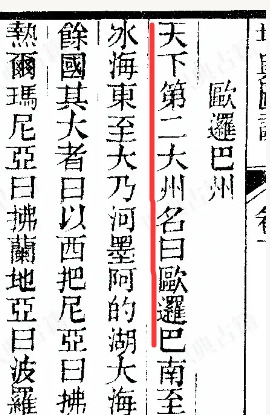 歐邏巴州
天下第二大州名曰歐邏巴南至
冰海東至大乃河墨阿的湖大海
餘國其大者曰以西把尼亞曰拂
熱爾瑪尼亞曰拂蘭地亞曰波羅